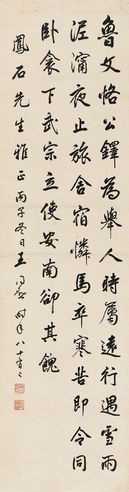 魯文恪公鐸為舉人時屬遠行遇雪雨
泥濘夜止旅舍宿憐馬卒寒苦即令同
臥衾下武宗立使安南卻其餽
鳳石先生雅正 丙子冬日王同愈時年八十有二